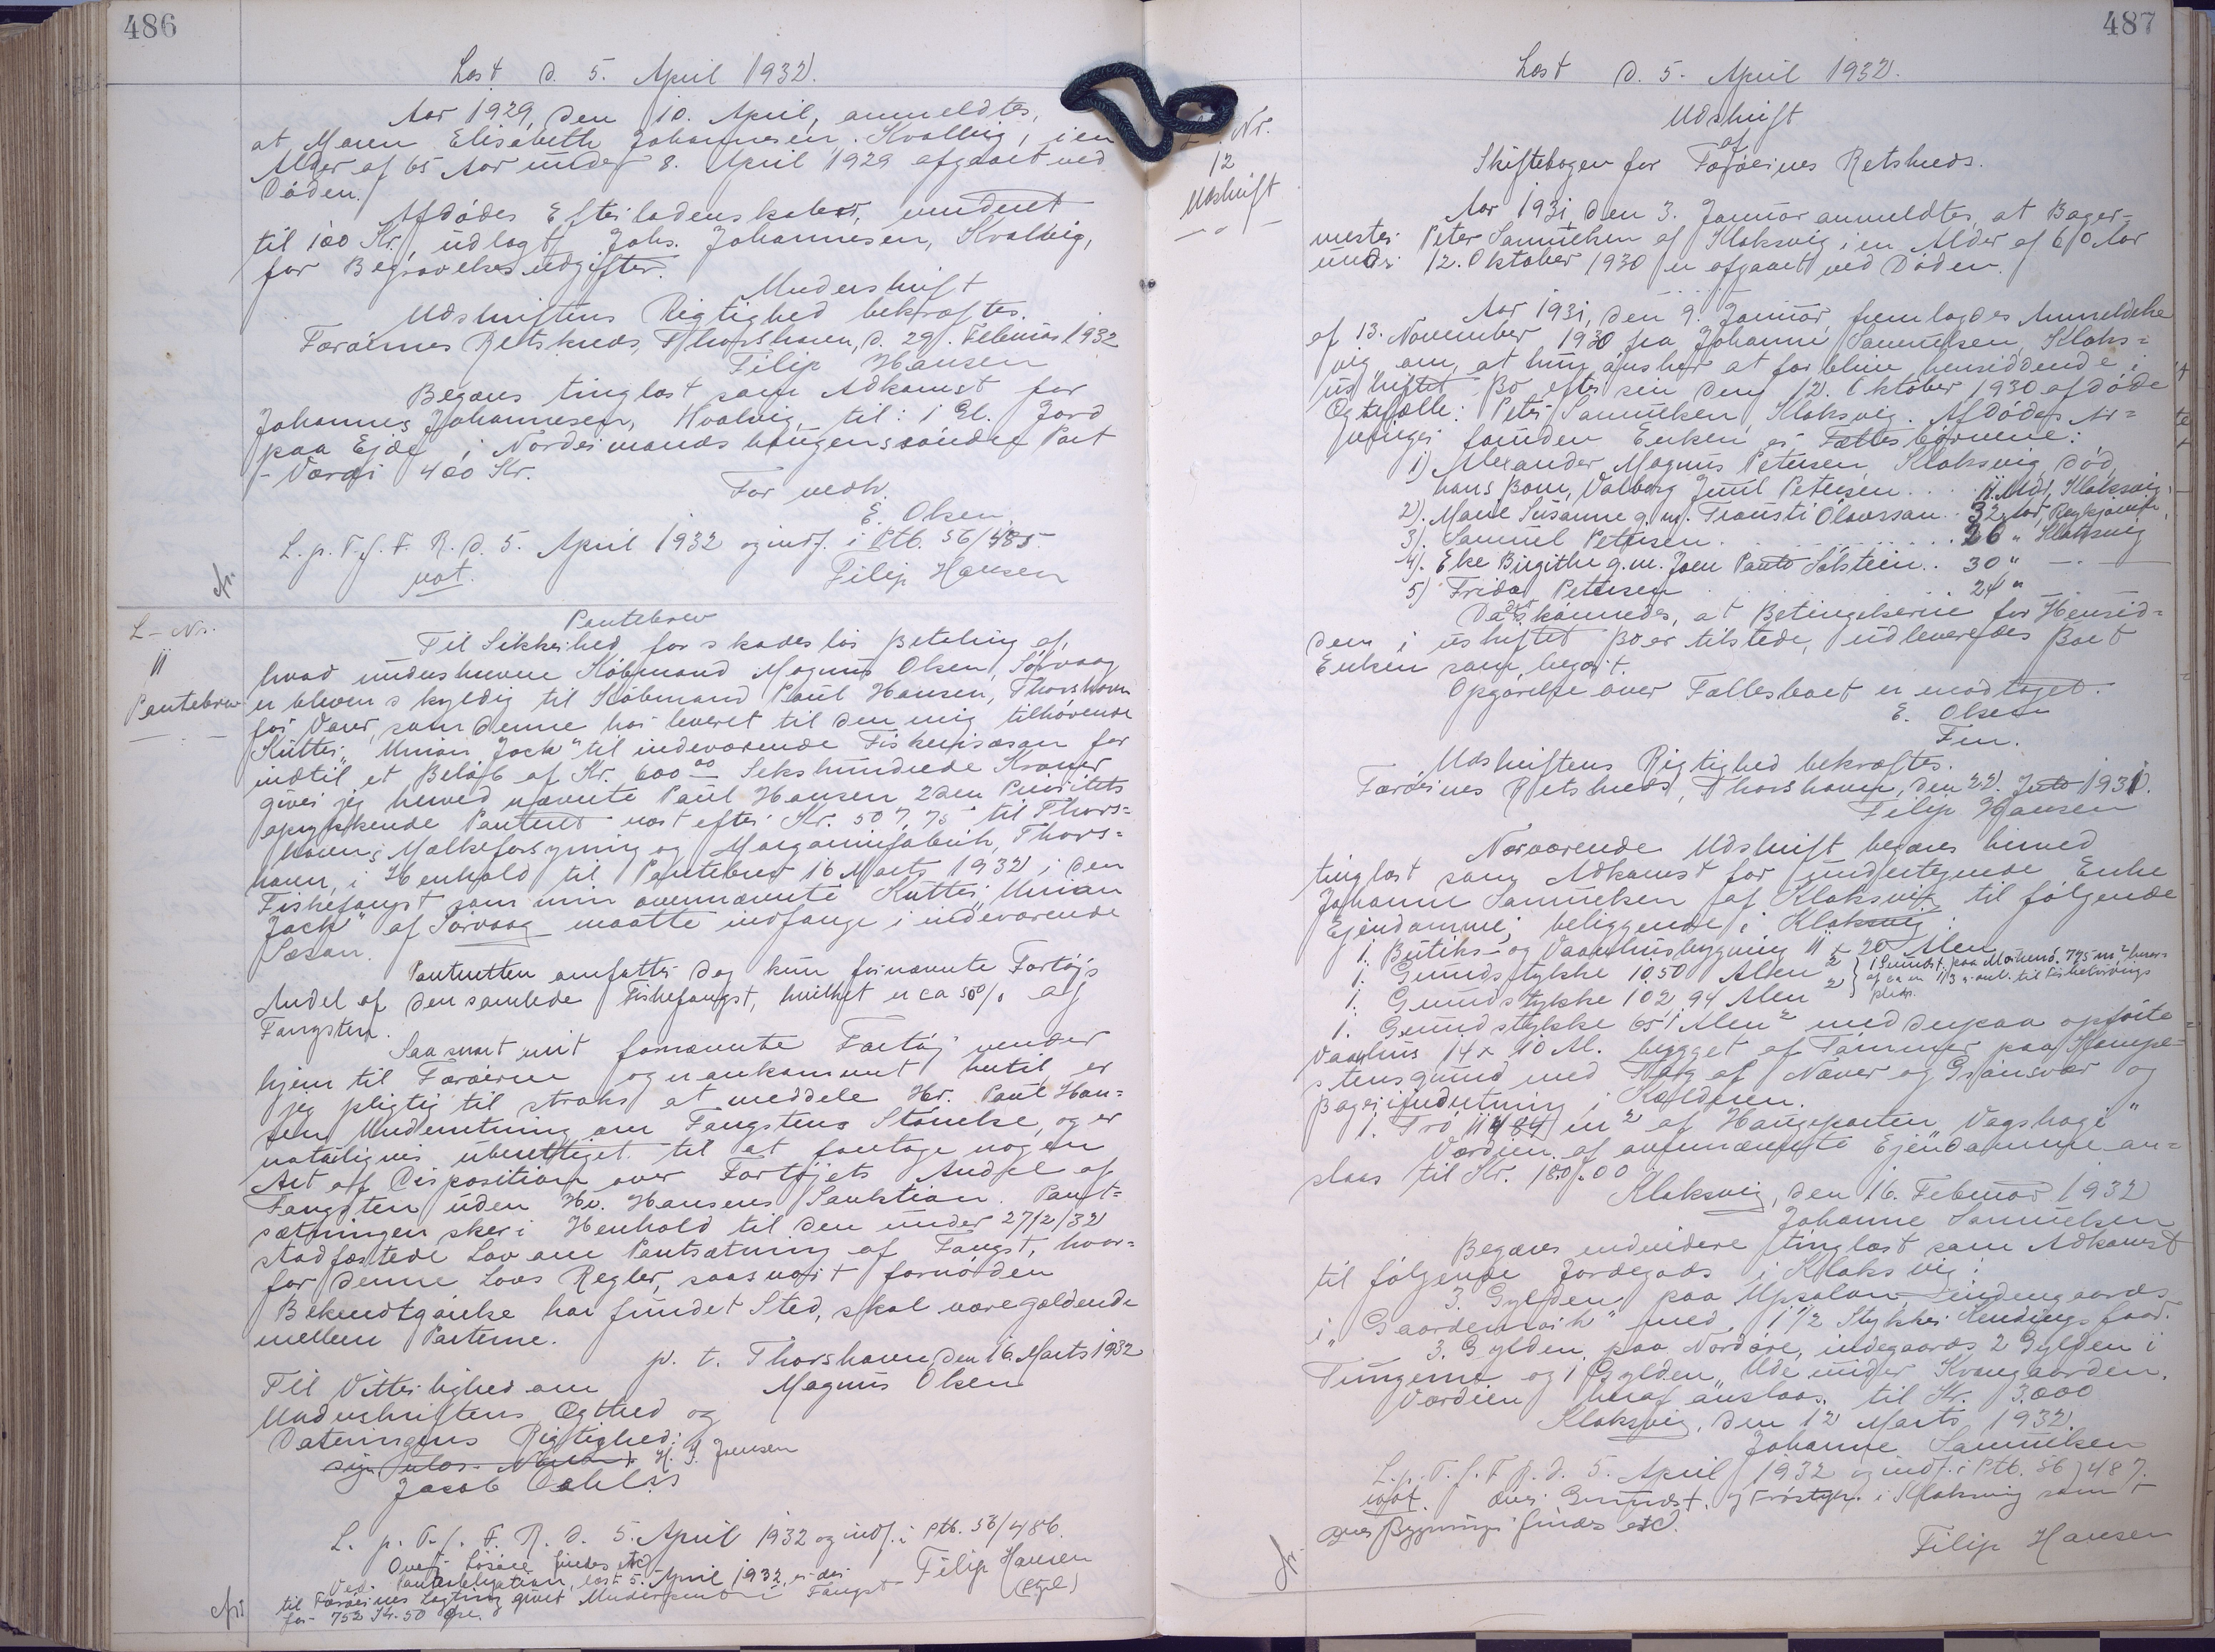 486
Læst d. 5. April 1932.
Aar 1929, den 10. April, anmeldtes,
at Maren Elisabeth Johannesen, Kvalvig, i en
Alder af 65 Aar under 8. April 1929 afgaaet ved
Döden.
Afdödes Efterladenskaber, vurderet
til 100 Kr., udlagt Johs. Johannesen, Kvalvig,
for Begravelsesudgifter.
Underskrift
Udskriftens Rigtighed bekræftes.
Færöernes Retskreds, Thorshavn, d. 29. Februar 1932
Filip Hansen
Begæres tinglæst som Adkomst for
Johannes Johannesen, Hvalvig, til: 1 Gl. Jord
paa Ejde, i Nordermands haugens söndre Part
- Værdi 400 Kr.
For vedk.
E. Olsen
L. p. T. f. F. R. d. 5. April 1932 og indf. i Ptb. 56/485.
not.
Filip Hansen
L - Nr.
11
Pantebrev
Pantebrev
Til Sikkerhed for skadeslös Betaling af,
hvad underskrevne Köbmand Magnus Olsen, Sörvaag
er bleven skyldig til Köbmand Paul Hansen, Thorshavn
for Varer, som denne har leveret til den mig tilhörende
Kutter "Union Jack" til indeværende Fiskerisæson for
indtil et Belöb af Kr. 600 00 Sekshundrede Kroner
giver jeg herved nævnte Paul Hansen 2den Prioritets
oprykkende Panteret næst efter Kr. 507,75 til Thors=
havns Mælkeforsyning og Margarinefabrik, Thors=
havn, i Henhold til Pantebrev 16 Marts 1932 i den
Fiskefangst som min ovennævnte Kutter "Union
Jack" af Sörvaag maatte indfange i indeværende
Sæson.
Panteretten omfatter dog kun fornævnte Fartöjs
Andel af den samlede Fiskefangst, hvilket er ca 50% af
Fangsten.
Saa snart mit fornævnte Fartöj vender
hjem til Færöerne og er ankommet hertil, er
jeg pligtig til straks at meddele Hr. Paul Han=
sen Underretning om Fangstens Störrelse, og er
naturligvis uberettiget til at foretage nogen
Art af Disposition over Fartöjets Andel af
Fangsten uden Hr. Hansens Sanktion. Pant=
sætningen sker i Henhold til den under 27/2/32
stadfæstede Lov om Pantsætning af Fangst, hvor=
for denne Lovs Regler, saasnart fornöden
Bekendtgörelse har fundet Sted, skal være gældende
mellem Parterne.
p. t. Thorshavn, den 16. Marts 1932
Magnus Olsen
Til Vitterlighed om
Underskriftens Ægthed og
Dateringens Rigtighed:
H. J. Jensen
Jacob
L. p. T. f. F. R. d. 5. April 1932 og indf. i Ptb. 56/486.
Over Lösöre findes etc
Ved Panteobligation, læst 5. April 1932, er der
til Færöernes Lagting givet Underpant i Fangst
for 752 Kr. 50 Øre.
Filip Hansen
487
Læst d. 5. April 1932.
Nr.
12
Udskrift
Udskrift
af
Skiftebogen for Færöernes Retskreds.
Aar 1931, den 3. Januar anmeldtes, at Bager=
mester Peter Samuelsen af Klaksvig i en Alder af 60 Aar
under 12. Oktober 1930 er afgaaet ved Döden.
Aar 1931, den 9. Januar, fremlagdes Anmeldelse
af 13. November 1930 fra Johanne Samuelsen, Klaks=
vig om, at hun önsker at forblive hensiddende i
uskiftet Bo efter sin den 12. Oktober 1930 afdöde
Ægtefælle: Peter Samuelsen, Klaksvig. Afdödes Ar=
vinger foruden Enken er Fællesbörnene:
1) Alexander Magnus Petersen, Klaksvig, död,
hans Barn, Valborg Juul Petersen . . . 11 Mdr, Klaksvig,
2). Marie Susanne g. m. Trausti Olavssan . . 32 Aar, Reykjavik,
3). Samuel Petersen . . . . . . . 26 " Klaksvig
4). Else Birgithe g. m. Joen Pauto Solstein . . 30 " — " —
5) Frida Petersen 24 "
Da det skönnedes, at Betingelserne for Hensid=
den i uskiftet Bo er tilstede, udleveredes Boet
Enken som begært.
Opgörelse over Fællesboet er modtaget.
E. Olsen
Fm.
Udskriftens Rigtighed bekræftes.
Færöernes Retskreds, Thorshavn, den 22. 1931.
Filip Hansen
Nærværende Udskrift begæres hermed
tinglæst som Adkomst for undertegnede Enke
Johanne Samuelsen af Klaksvig til fölgende
Ejendomme, beliggende i Klaksvig:
1. Butiks- og Vaanhusbygning 11 x 20 Alen
1. Grundstykke 1050 Alen²
1. Grundstykke 102,94 Alen²
1. Grundstykke 651 Alen² med derpaa opförte
Vaanhus 14 x 10 Al. bygget af Tömmer paa Kampe=
stensgrund med Tag af Næver og Grönsvær og
Bageriindretning i Kælderen.
1. Trö 11484 m² af Haugeparten "Vagshagi"
Værdien af ovennævnte Ejendomme an=
slaas til Kr. 1800.00
Klaksvig, den 16. Februar 1932
Johanne Samuelsen
Begæres endvidere tinglæst som Adkomst
til fölgende Jordegods i Klaksvig:
3. Gylden paa Upsalan indengaards
i " med 1 1/2 Stykker Kendingsfaar.
3. Gylden paa Nordöre, indegaards 2 Gylden i
Tungerne og 1 Gylden Ude under Kvangaarden.
Værdien heraf anslaas til Kr. 3.000
Klaksvig, den 12 Marts 1932.
Johanne Samuelsen
L. p. T. f. F. R. d. 5. April 1932 og indf. i Ptb. 56/487.
not. Over Grundst. og Tröstyk. i Klaksvig samt
over Bygninger findes etc.
Filip Hansen